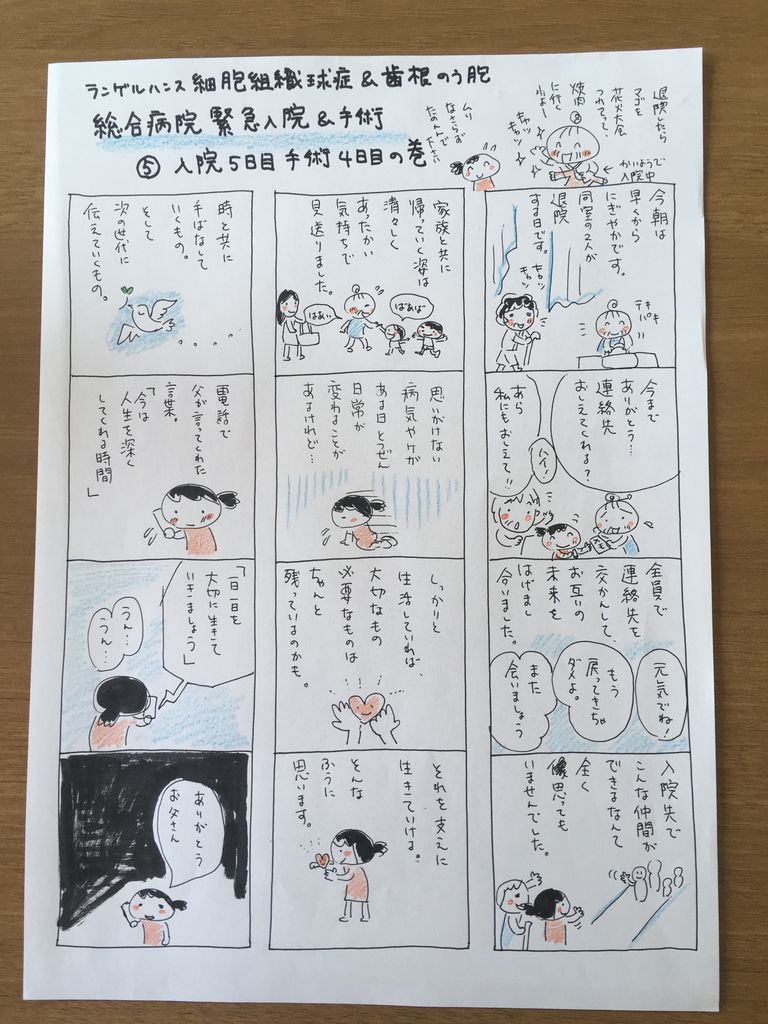 ランゲルハンス細胞組織球症&歯根のう胞
総合病院 緊急入院&手術
⑤ 入院5日目 手術4日目の巻
退院したら
マゴを
花火大会
つれてって、
焼肉
に行く
かいようで
入院中
キャッ
キャッ
ムリ
なさらず
たのんで
下さい
今朝は
早くから
にぎやかです。
同室の2人が
退院
する日です。
キャッ
キャッ
テキ
パキ
今まで
ありがとう…
連絡先
おしえてくれる?
ハイ!
あら
私にもおしえて!!
全員で
連絡先を
交かんして、
お互いの
未来を
はげまし
合いました。
元気でね!
もう
戻ってきちゃ
ダメよ。
また
会いましょう
入院先で
こんな仲間が
できるなんて
全く
思っても
いませんでした。
家族と共に
帰っていく姿は
清々しく
あったかい
気持ちで
見送りました。
ばあば
はあい
思いがけない
病気やケガ
ある日とつぜん
日常が
変わることが
あるけれど…
しっかりと
生活していれば、
大切なもの
必要なものは
ちゃんと
残っているのかも。
それを支えに
生きていける。
そんな
ふうに
思います。
時と共に
手ばなして
いくもの。
そして
次の世代に
伝えていくもの。
電話で
父が言ってくれた
言葉。
「今は
人生を深く
してくれる時間」
「一日一日を
大切に生きて
いきましょう」
うん…
うん…
ありがとう
お父さん